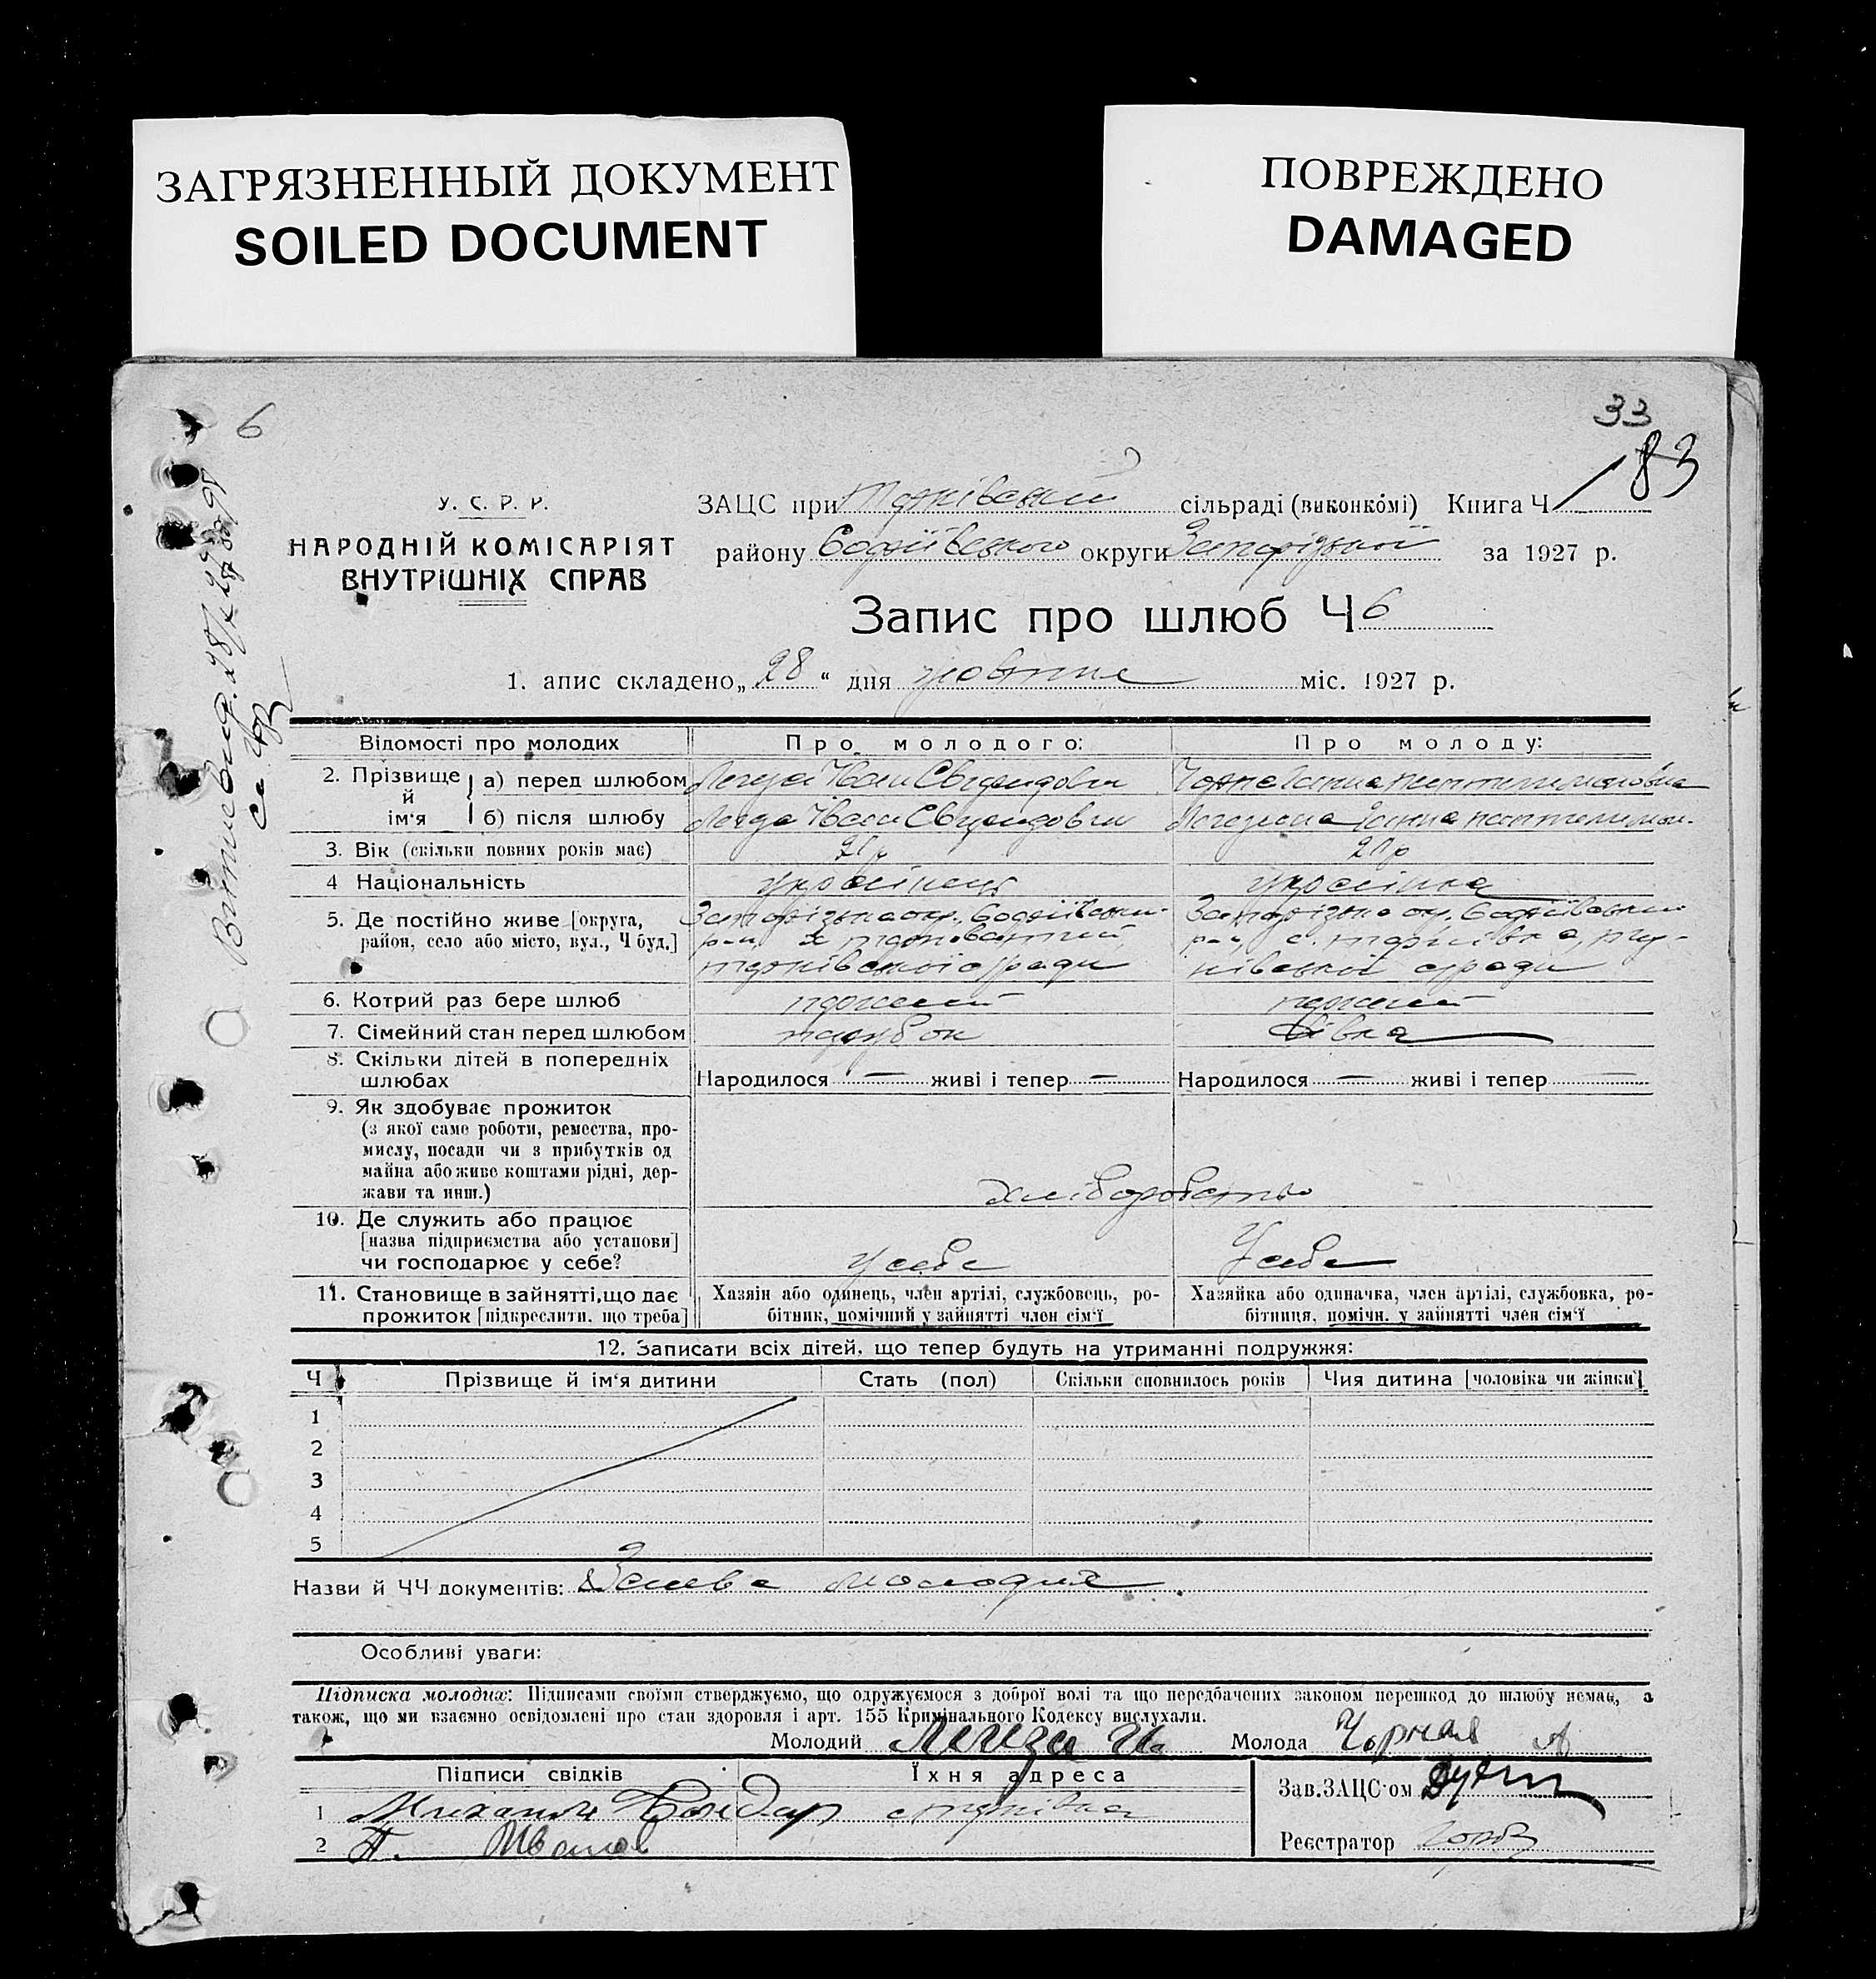 ЗАГРЯЗНЕННЫЙ ДОКУМЕНТ
SOILED DOCUMENT
ПОВРЕЖДЕНО
DAMAGED
6
33
83
У. С. Р. Р.
НАРОДНІЙ КОМІСАРІЯТ
ВНУТРІШНІХ СПРАВ
ЗАЦС при сільраді (виконкомі) Книга Ч
району Софіївського округи Запорізької за 1927 р.
Запис про шлюб Ч 6
1. апис складено „28“ дня жовтня міс. 1927 р.
Відомості про молодих Про молодого: Про молоду:
2. Прізвище й ім'я а) перед шлюбом Іван Ганна Пантелимоновна
б) після шлюбу Іван Ганна
3. Вік (скільки повних років має) 21р
4 Національність українець українка
5. Де постійно живе [округа, Запорізька ок., Софіївськи- Запорізька ок. Софіївськи
район, село або місто, вул., Ч буд.] р-н, р-н, с.
ської с/ради ської с/ради
6. Котрий раз бере шлюб перший перший
7. Сімейний стан перед шлюбом парубок дівка
8. Скільки дітей в попередніх
шлюбах Народилося — живі і тепер — Народилося — живі і тепер —
9. Як здобуває прожиток
(з якої саме роботи, ремества, про-
мислу, посади чи з прибутків од
майна або живе коштами рідні, дер-
жави та инш.) хліборобство
10. Де служить або працює
[назва підприємства або установи]
чи господарює у себе? У себе У себе
11. Становище в зайнятті, що дає Хазяїн або одинець, член артілі, службовець, ро- Хазяйка або одиначка, член артілі, службовка, ро-
прожиток [підкреслити. що треба] бітник, помічний у зайнятті член сім'ї бітниця, помічн. у зайнятті член сім'ї
12. Записати всіх дітей, що тепер будуть на утриманні подружжя:
Ч Прізвище й ім'я дитини Стать (пол) Скільки сповнилось років Чия дитина [чоловіка чи жінки]
1
2
3
4
5
Назви й ЧЧ документів: Заява молодих.
Особливі уваги:
Підписка молодих: Підписами своїми стверджуємо, що одружуємося з доброї волі та що передбачених законом перешкод до шлюбу немає, а
також, що ми взаємно освідомлені про стан здоровля і арт. 155 Кримінального Кодексу вислухали.
Молодий Молода Чорная А
Підписи свідків Їхня адреса
Зав.ЗАЦС'ом
1 Михаил Бондар
2 П. Иванов
Реєстратор